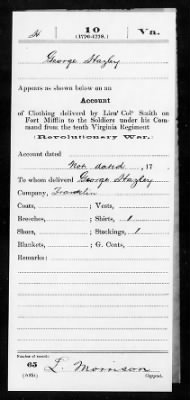 H 10 Va.
(1776-1778.)
George Hazley
Appears as shown below on an
Account
of Clothing delivered by Lieut Colo Smith on
Fort Mifflin to the Soldiers under his Com-
mand from the tenth Virginia Regiment
(Revolutionary War.)
Account dated
Not dated, 17
To whom delivered George Hazley
Company, Franklin
Coats, Vests,
Breeches, Shirts, 1
Shoes, Stockings, 1
Blankets, G. Coats,
Remarks:
Number of record:
65 L. Morrison
Copyist.